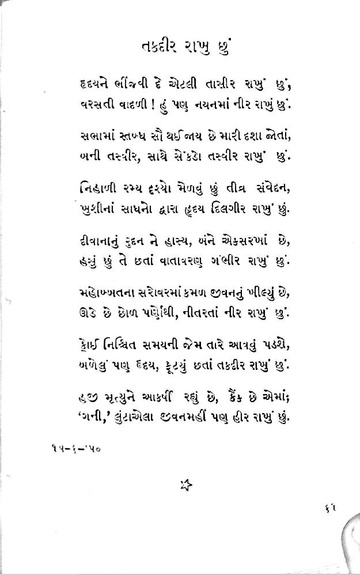 તકદીર રાખુ છું
હૃદયને ભીંજવી દે એટલી તાસીર રાખું છું,
વરસતી વાદળી ! હું પણ નયનમાં નીર રાખું છું.
સભામાં સ્તબ્ધ સૌ થઈ જાય છે મારી દશા જોતાં,
બની તસ્વીર, સાથે સેંકડો તસ્વીર રાખું છું.
નિહાળી રમ્ય દૃશ્યો મેળવું છું તીવ્ર સંવેદન,
ખુશીનાં સાધનો દ્વારા હૃદય દિલગીર રાખું છું.
દીવાનાનું રુદન ને હાસ્ય, બંને એકસરખાં છે,
હસું છું તે છતાં વાતાવરણ ગંભીર રાખું છું.
મહોબ્બતના સરોવરમાં કમળ જીવનનું ખીલ્યું છે,
ઊડે છે છોળ પર્ણોથી, નીતરતાં નીર રાખું છું.
કોઈ નિશ્ચિત સમયની જેમ તારે આવવું પડશે,
બળેલું પણ હૃદય, ફૂટયું છતાં તકદીર રાખું છું.
હજી મૃત્યુને આકર્ષી રહ્યું છે, કૈંક છે એમાં;
'ગની,' લુંટાએલા જીવનમહીં પણ હીર રાખું છું.
૧૫-૬-'૫૦
૬૧